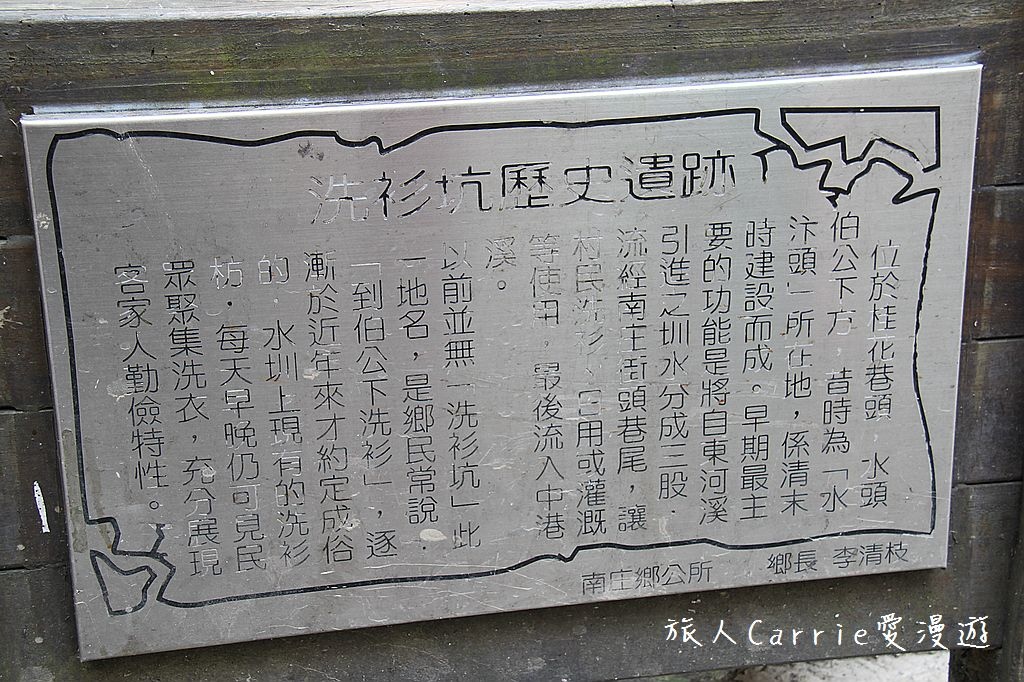 洗衫坑歷史遺跡
位於桂花巷頭 水頭
伯公下方 昔時為「水
汴頭」所在地,係清末
時建設而成。早期最主
要的功能是將自東河溪
引進之圳水分成三股.
流經南庄街頭巷尾,讓
村民洗衫、日用或灌溉
等使用,最後流入中港
溪。
以前並無「洗衫坑」此
一地名,是鄉民常說.
「到伯公下洗衫」,逐
漸於近年來才約定成俗
的. 水圳上現有的洗衫
枋.每天早晚仍可見民
眾聚集洗衣,充分展現
客家人勤儉特性。
南庄鄉公所 鄉長 李清枝
旅人Carrie愛漫遊